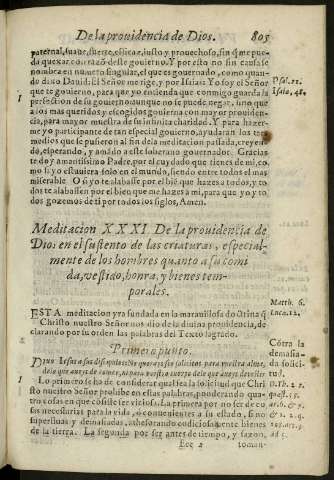 De la prouidencia de Dios. 805
paternal, suaue, fuerte, eficaz, iusto y prouechoso, sin q̃ me pue-
da quexar con razõ deste gouierno. Y por esto no sin causa se
nombra en numero singular, el que es gouernado, como quan-
do dixo Dauid: El Señor me rige, y por Isaias Yo soy el Señor
que te gouierno, para que yo entienda que conmigo guarda la
perfection de su gouierno aunque no se puede negar, sino que a
los mas queridos y escogidos gouierna con mayor prouiden-
cia, para mayor muestra de su infinita charidad. Y para hazer-
me yo participante de tan especial gouierno, ayudaran los tres
medios que se pusieron al fin dela meditacion passada, creyen-
do, esperando, y amãdo a este soberano gouernador. Gracias
te doy amantissimo Padre, por el cuydado que tienes de mi, co-
mo si yo estuuiera solo en el mundo, siendo entre todos el mas
miserable O si yo te alabasse por el bien que hazes a todos, y to-
dos te alabassen por el bien que me hazes a mi, para que yo y to-
dos gozemos de ti por todos los siglos, Amen.
Psal. 22.
Isaiæ, 48.
1
Meditacion XXXI De la prouidencia de
Dios en el sustento de las criaturas, especial-
mente de los hombres quanto a su comi
da, vestido, honra, y bienes tem-
porales.
ESTA meditacion yra fundada en la marauillosa doctrina q̃
Christo nuestro Señor nos dio de la diuina prouidencia, de
clarando por su orden las palabras del Texto sagrado.
Matth. 6.
Luca. 12.
Primero punto.
Dixo Iesus a sus discipulos: No querays ser solicitos para vuestra alma,
dela que aueys de comer, ni para vuestro cuerpo dela que aueys de vestir
1
Lo primero se ha de considerar qual sea la solicitud que Chri
sto nuestro Señor prohibe en estas palabras, ponderando qua-
tro cosas en que cõsiste ser viciosa. La primera por no ser de co
sas necessarias para la vida, o conuenientes a su estado, sino
superfluas y demasiadas, athesorando codiciosamente bienes
de la tierra. La segunda por ser antes de tiempo, y sazon,
Cõtra la
demasia-
da solici-
tud.
D. Th. 2. 2.
quæst. 55.
ad 5.
Eee 2 toman-